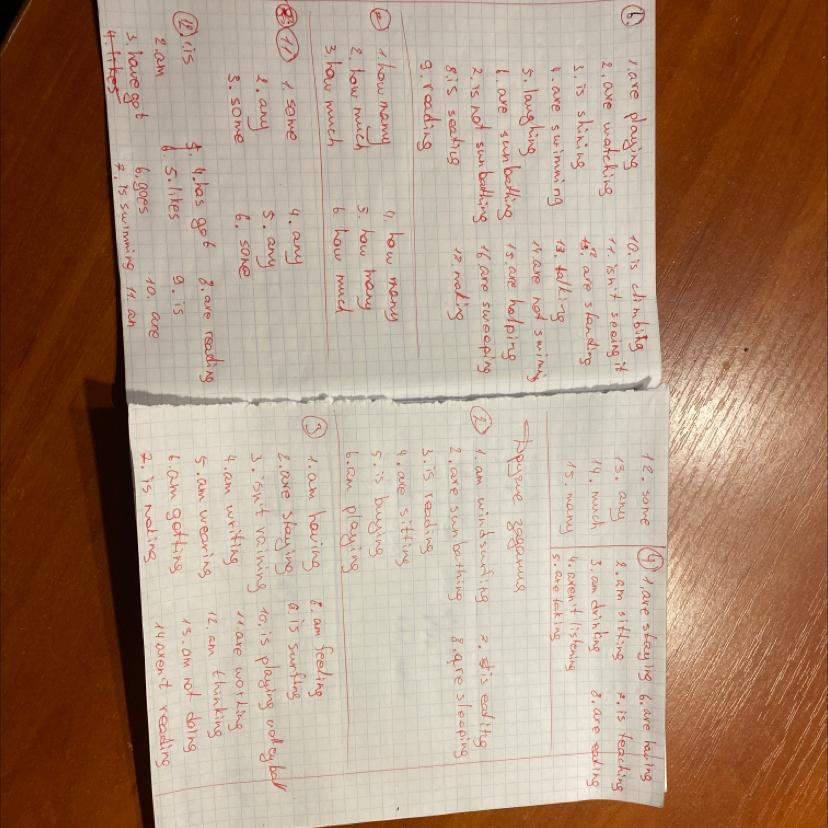 6. 1. are playing
2. are watching
3. is shining
4. are swimming
5. laughing
6. are sunbathing
7. is not sunbathing
8. is seating
9. reading
10. is climbing
11. isn't seeing it
12. are standing
13. talking
14. are not swiming
15. are helping
16 are sweeping
17. making
1. how many
2. how much
3. how much
4. how many
5. how many
6. how much
11 1. some
2. any
3. some
4. any
5. any
6. some
12 1. is
2. am
3. have got
4. likes
4. has got
5. likes
6. goes
7. is swimming
8. are reading
9. is
10. are
11. an
12. some
13. any
14. much
15. many
Другие задания
2 1. am windsurfing
2. are sunbathing
3. is reading
4. are sitting
5. is buying
6. am playing
7. is eating
8. are sleeping
3 1. am having
2. are staying
3. isn't raining
4. am writing
5. am wearing
6. am getting
7. is making
8. am feeling
9. is surfing
10. is playing volleyball
11. are working
12. am thinking
13. am not doing
14 aren't reading
4 1. are staying
2. am sitting
3. am drinking
4. aren't listening
5. are taking
6. are having
7. is teaching
8. are eating